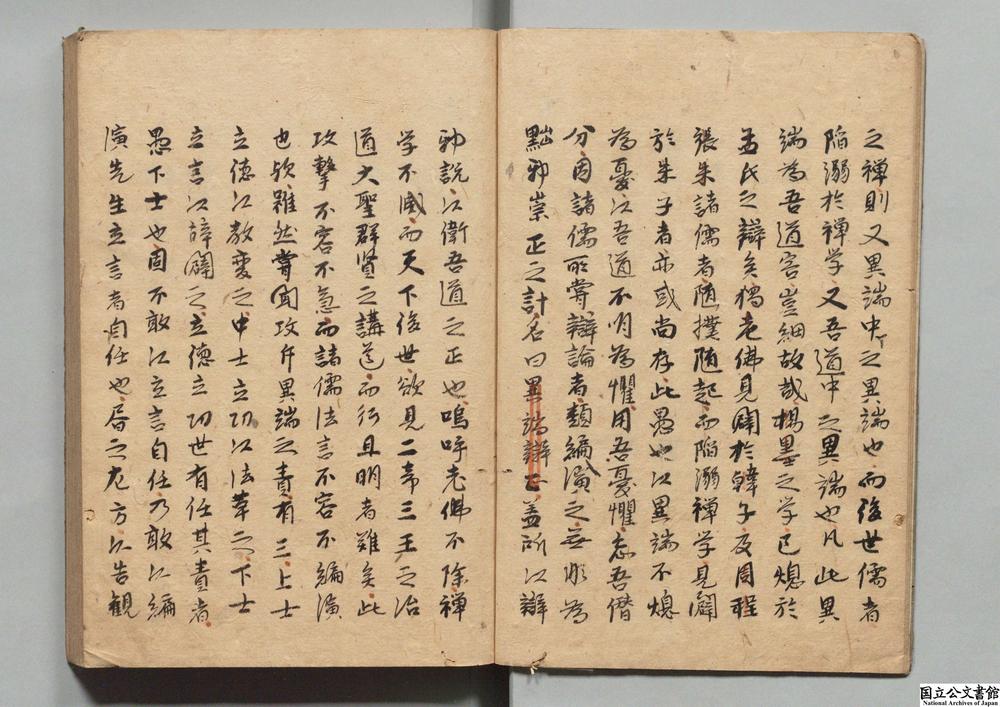 之禅則又異端中之異端也而後世儒者
陥溺於禅学又吾道中之異端也凡此異
端為吾道害豈細故哉楊墨之学已熄於
孟氏之辯矣獨老佛見闢於韓子及周程
張朱諸儒者随撲随起而陥溺禅学見闢
於朱子者亦或尚存此愚也以異端不熄
為憂以吾道不明為懼用吾憂懼忘吾僭
分因諸儒所嘗辯論者類編演之無彫為
黜邪崇正之計名曰異端辯正盖所以辯
邪説以衛吾道之正也嗚呼老佛不除禅
学不滅而天下後世欲見二帝三王之治
道大聖群賢之講道而行且明者難矣此
攻撃不容不急而諸儒法言不容不編演
也欤雖然嘗聞攻斥異端之責有三上士
立徳以教変之中士立功以法革之下士
立言以辞闢之立徳立功世有任其責者
愚下士也固不敢以立言自任乃敢以編
演先生立言者自任也唇之左方以告観
国立公文書館
National Archives of Japan